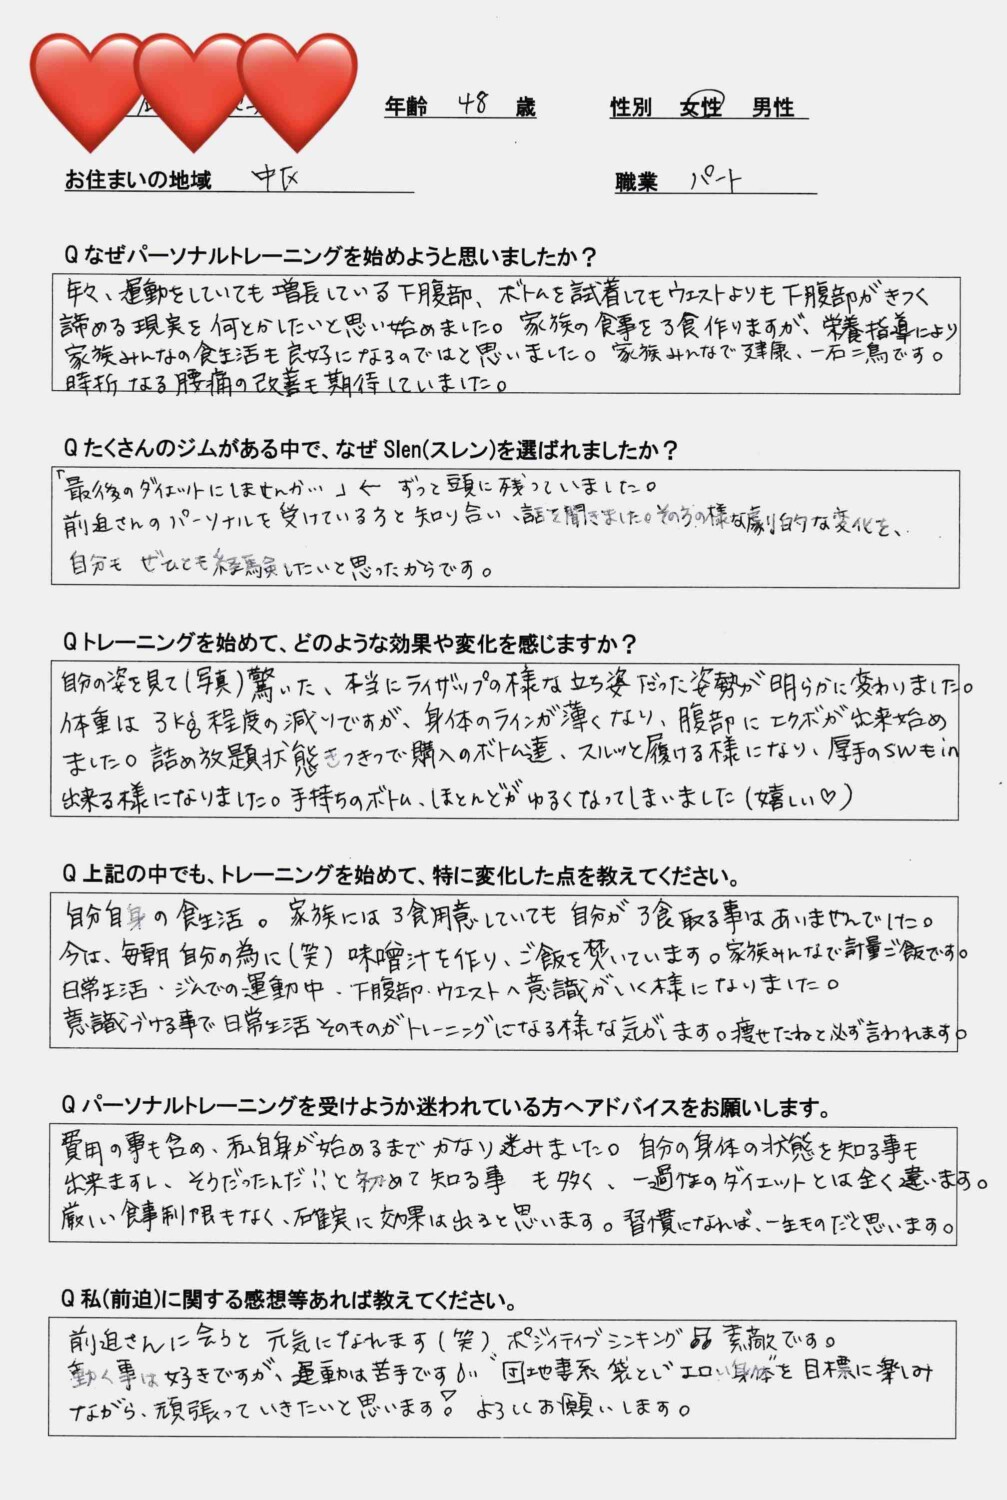 年齢 48 歳 性別 女性 男性
お住まいの地域 中区 職業 パート
Q なぜパーソナルトレーニングを始めようと思いましたか？
年々、運動をしていても増長している下腹部、ボトムを試着してもウエストよりも下腹部がきつく
諦める現実を何とかしたいと思い始めました。家族の食事を3食作りますが、栄養指導により
家族みんなの食生活も良好になるのではと思いました。家族みんなで健康、一石二鳥です。
時折なる腰痛の改善も期待していました。
Q たくさんのジムがある中で、なぜ Slen(スレン)を選ばれましたか？
「最後のダイエットにしませんか…」← ずっと頭に残っていました。
前迫さんのパーソナルを受けている方と知り合い、話を聞きました。その方の様な劇的な変化を、
自分も ぜひとも経験したいと思ったからです。
Q トレーニングを始めて、どのような効果や変化を感じますか？
自分の姿を見て(写真)驚いた、本当にライザップの様な立ち姿だった姿勢が明らかに変わりました。
体重は3kg程度の減りですが、身体のラインが薄くなり、腹部にエクボが出来始め
ました。詰め放題状態きつきつで購入のボトム達、スルッと履ける様になり、厚手のSWもin
出来る様になりました。手持ちのボトム、ほとんどがゆるくなってしまいました(嬉しい♡)
Q 上記の中でも、トレーニングを始めて、特に変化した点を教えてください。
自分自身の食生活。家族には3食用意していても自分が3食取る事はありませんでした。
今は、毎朝自分の為に(笑)味噌汁を作り、ご飯を焚いています。家族みんなで計量ご飯です。
日常生活・ジムでの運動中・下腹部・ウエストへ意識がいく様になりました。
意識づける事で日常生活そのものがトレーニングになる様な気がします。痩せたねと必ず言われます。
Q パーソナルトレーニングを受けようか迷われている方へアドバイスをお願いします。
費用の事も含め、私自身が始めるまでかなり迷みました。自分の身体の状態を知る事も
出来ますし、そうだったんだ!!と初めて知る事 も多く、一過性のダイエットとは全く違います。
厳しい食事制限もなく、確実に効果は出ると思います。習慣になれば、一生ものだと思います。
Q 私(前迫)に関する感想等あれば教えてください。
前迫さんに会うと元気になれます(笑)ポジィティブシンキング♫素敵です。
動く事は好きですが、運動は苦手です 団地妻系 エロい身体"を目標に楽しみ
ながら、頑張っていきたいと思います！よろしくお願いします。